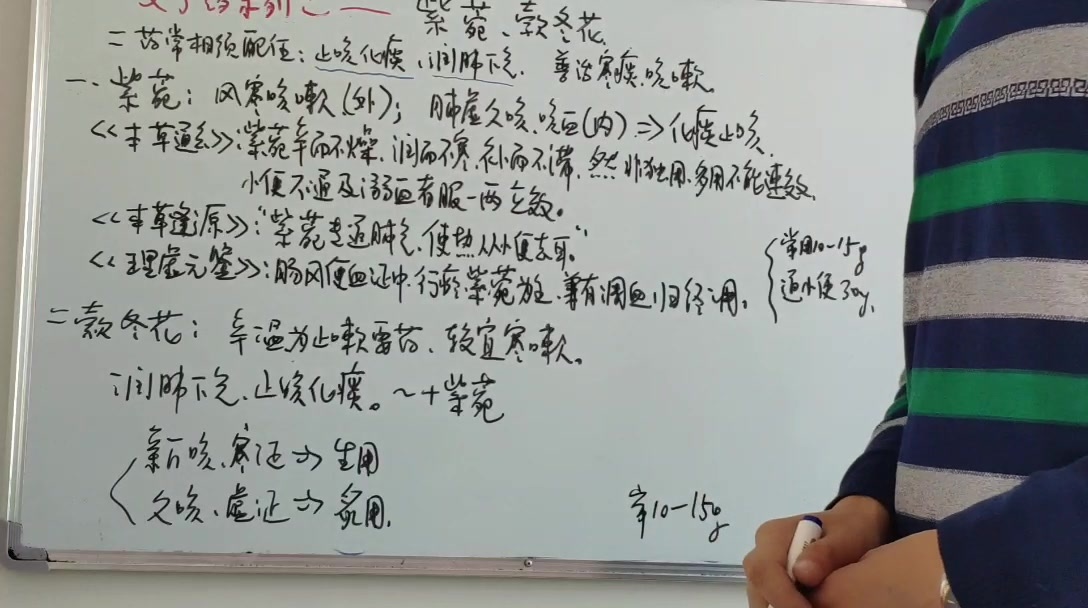 紫菀、款冬花
二药常相须配伍：止咳化痰、润肺下气. 善治寒痰咳嗽
一、紫菀：风寒咳嗽(外)；肺虚久咳、咳血(内)⇒化痰止咳.
<<本草通玄>>：紫菀辛而不燥、润而不寒、补而不滞、然非独用、多用不能速效、
小便不通及溺血者服一两立效。
<<本草逢源>>：“紫菀专通肺气、使热从小便去耳。”
<<理虚元鉴>>：肠风便血证中、行瘀紫菀为主、兼有调血归经之用。
常用10-15g
通小便30g、
二、款冬花：辛温为止嗽要药、较宜寒嗽。
润肺下气、止咳化痰。~+紫菀
新咳、寒证⇒生用
久咳、虚证⇒炙用、
常10-15g